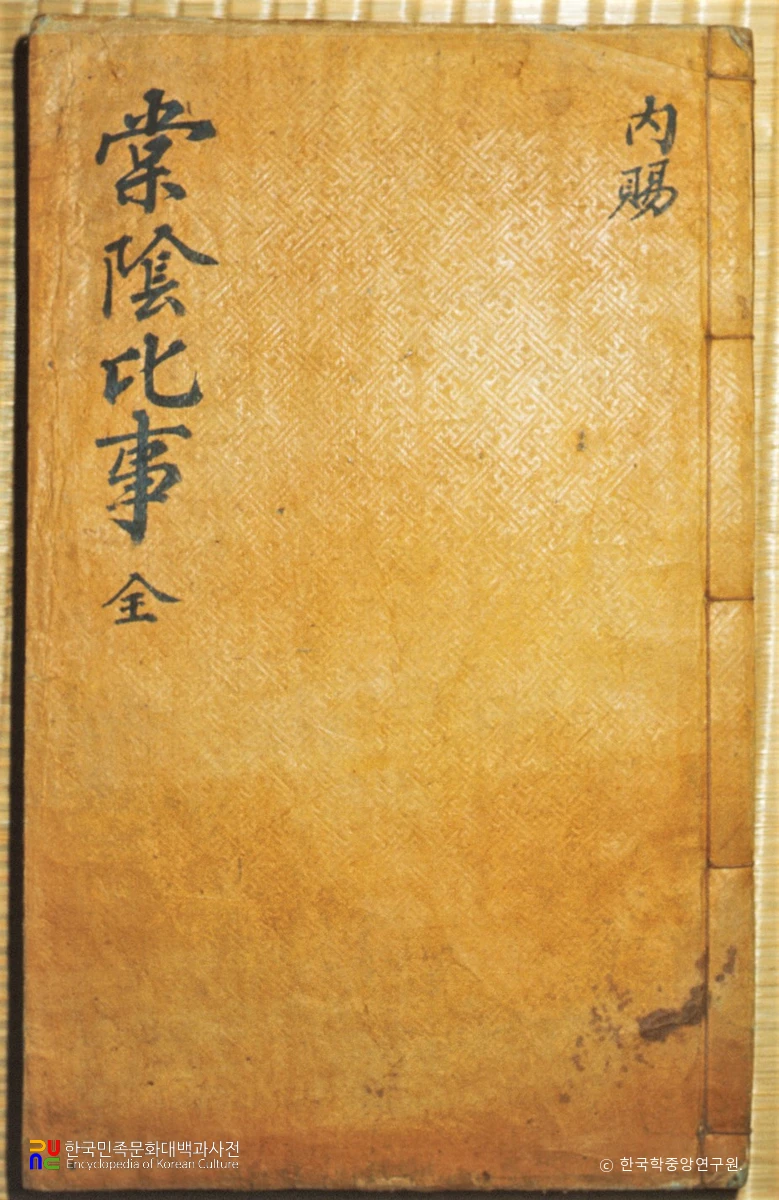 內賜
棠陰比事 全
한국민족문화대백과사전
Encyclopedia of Korean Culture
© 한국학중앙연구원